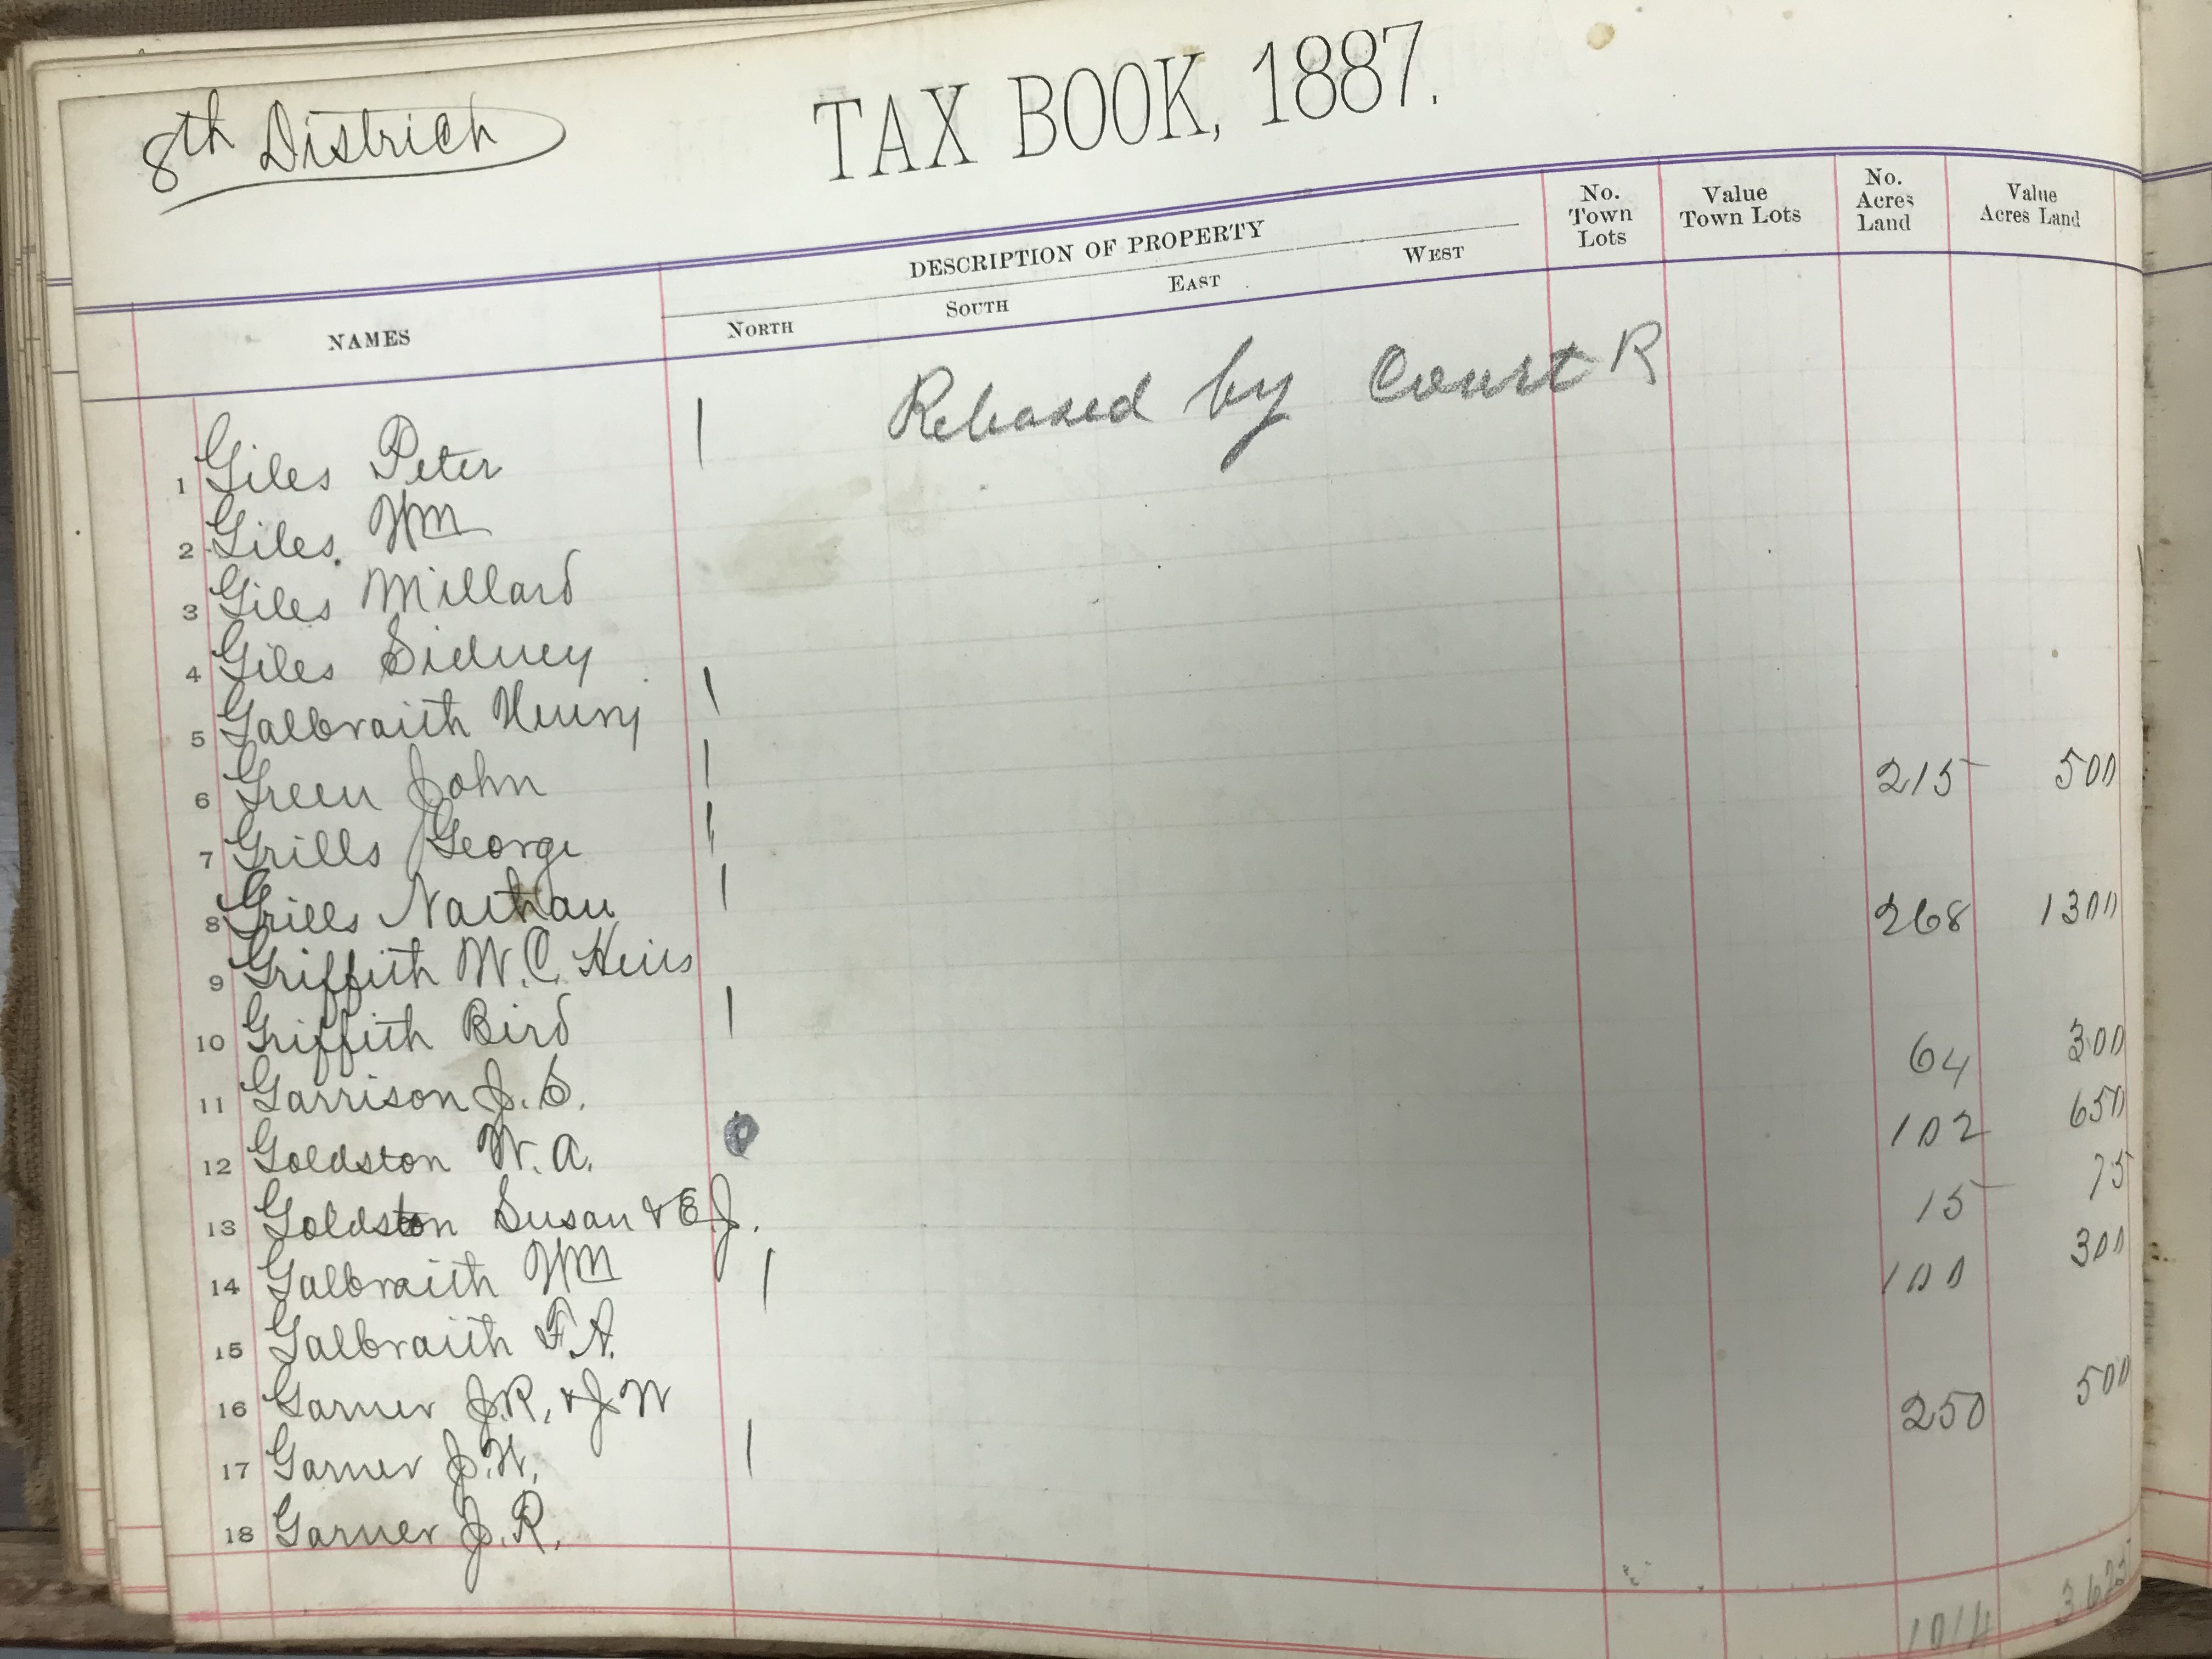 8th District
TAX BOOK, 1887.
NAMES DESCRIPTION OF PROPERTY No. Town Lots Value Town Lots No. Acres Land Value Acres Land
NORTH SOUTH EAST WEST
1 Giles Peter 1 Released by Court R
2 Giles Wm
3 Giles Millard
4 Giles Sidney
5 Galbraith Henry 1
6 Green John 1
7 Grills George 1 215 500
8 Grills Nathan 1
9 Griffith W.C. Heirs 268 1300
10 Griffith Bird 1
11 Garrison J.C. 64 300
12 Goldston W.A. 102 650
13 Goldston Susan & E.J. 15 75
14 Galbraith Wm 1 100 300
15 Galbraith F.A.
16 Garner J.R. & J W 250 500
17 Garner J.W. 1
18 Garner J.R.
1014 3625